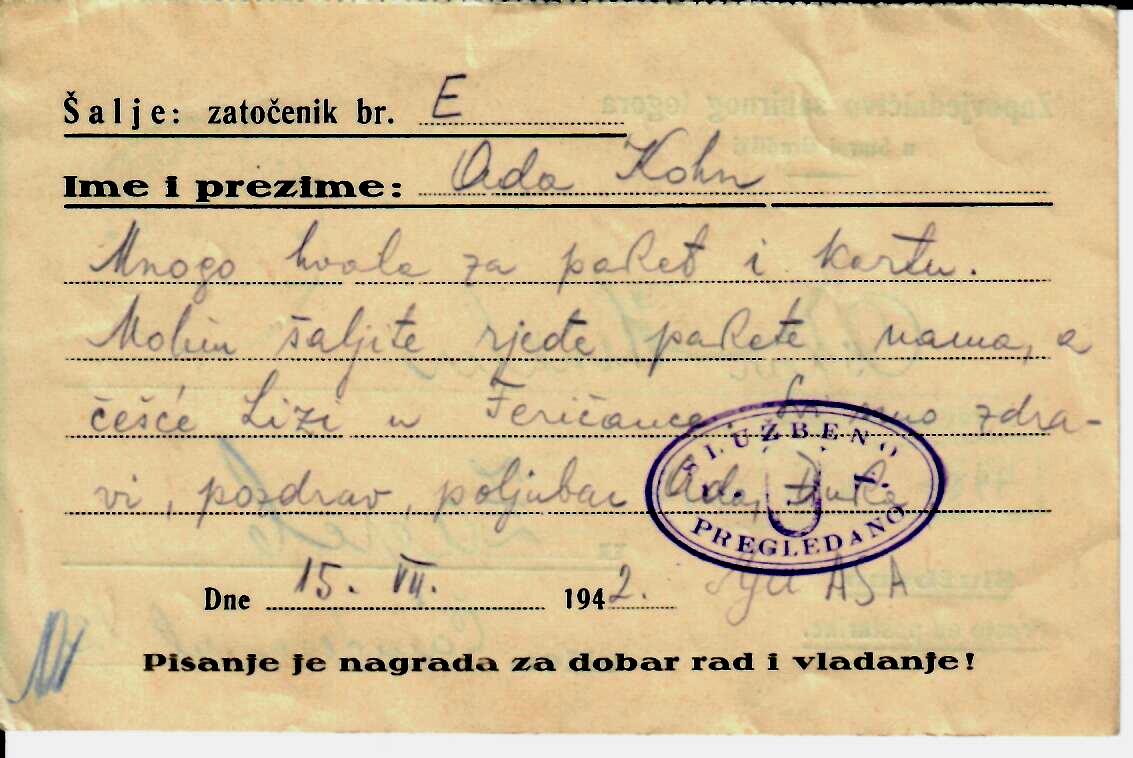 Šalje: zatočenik br. E
Ime i prezime: Ada Kohn
Mnogo hvala za paket i kartu.
Molim šaljite rjeđe pakete nama, a
češće Lizi u Feričance. zdra-
vi, pozdrav, poljubac Ada,
SLUŽBENO
U
PREGLEDANO
ASA
Dne 15. VII. 1942.
Pisanje je nagrada za dobar rad i vladanje!